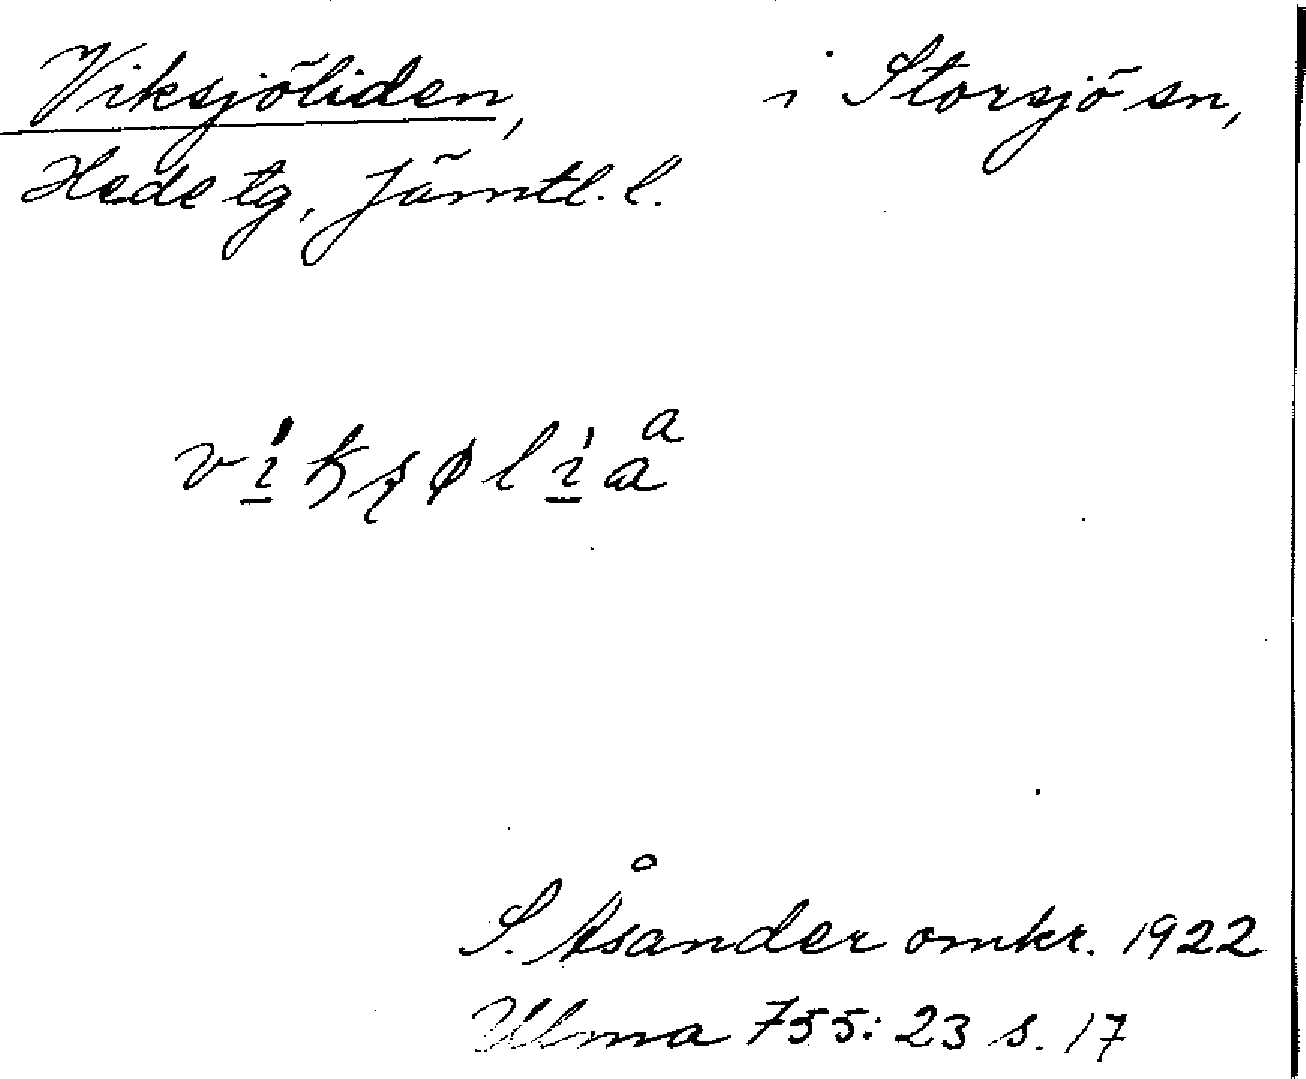 Viksjöliden, i Storsjö sn,
Hede tg, Jämtl. l.
S. Åsander omkr. 1922
Ulma 755:23 s. 17